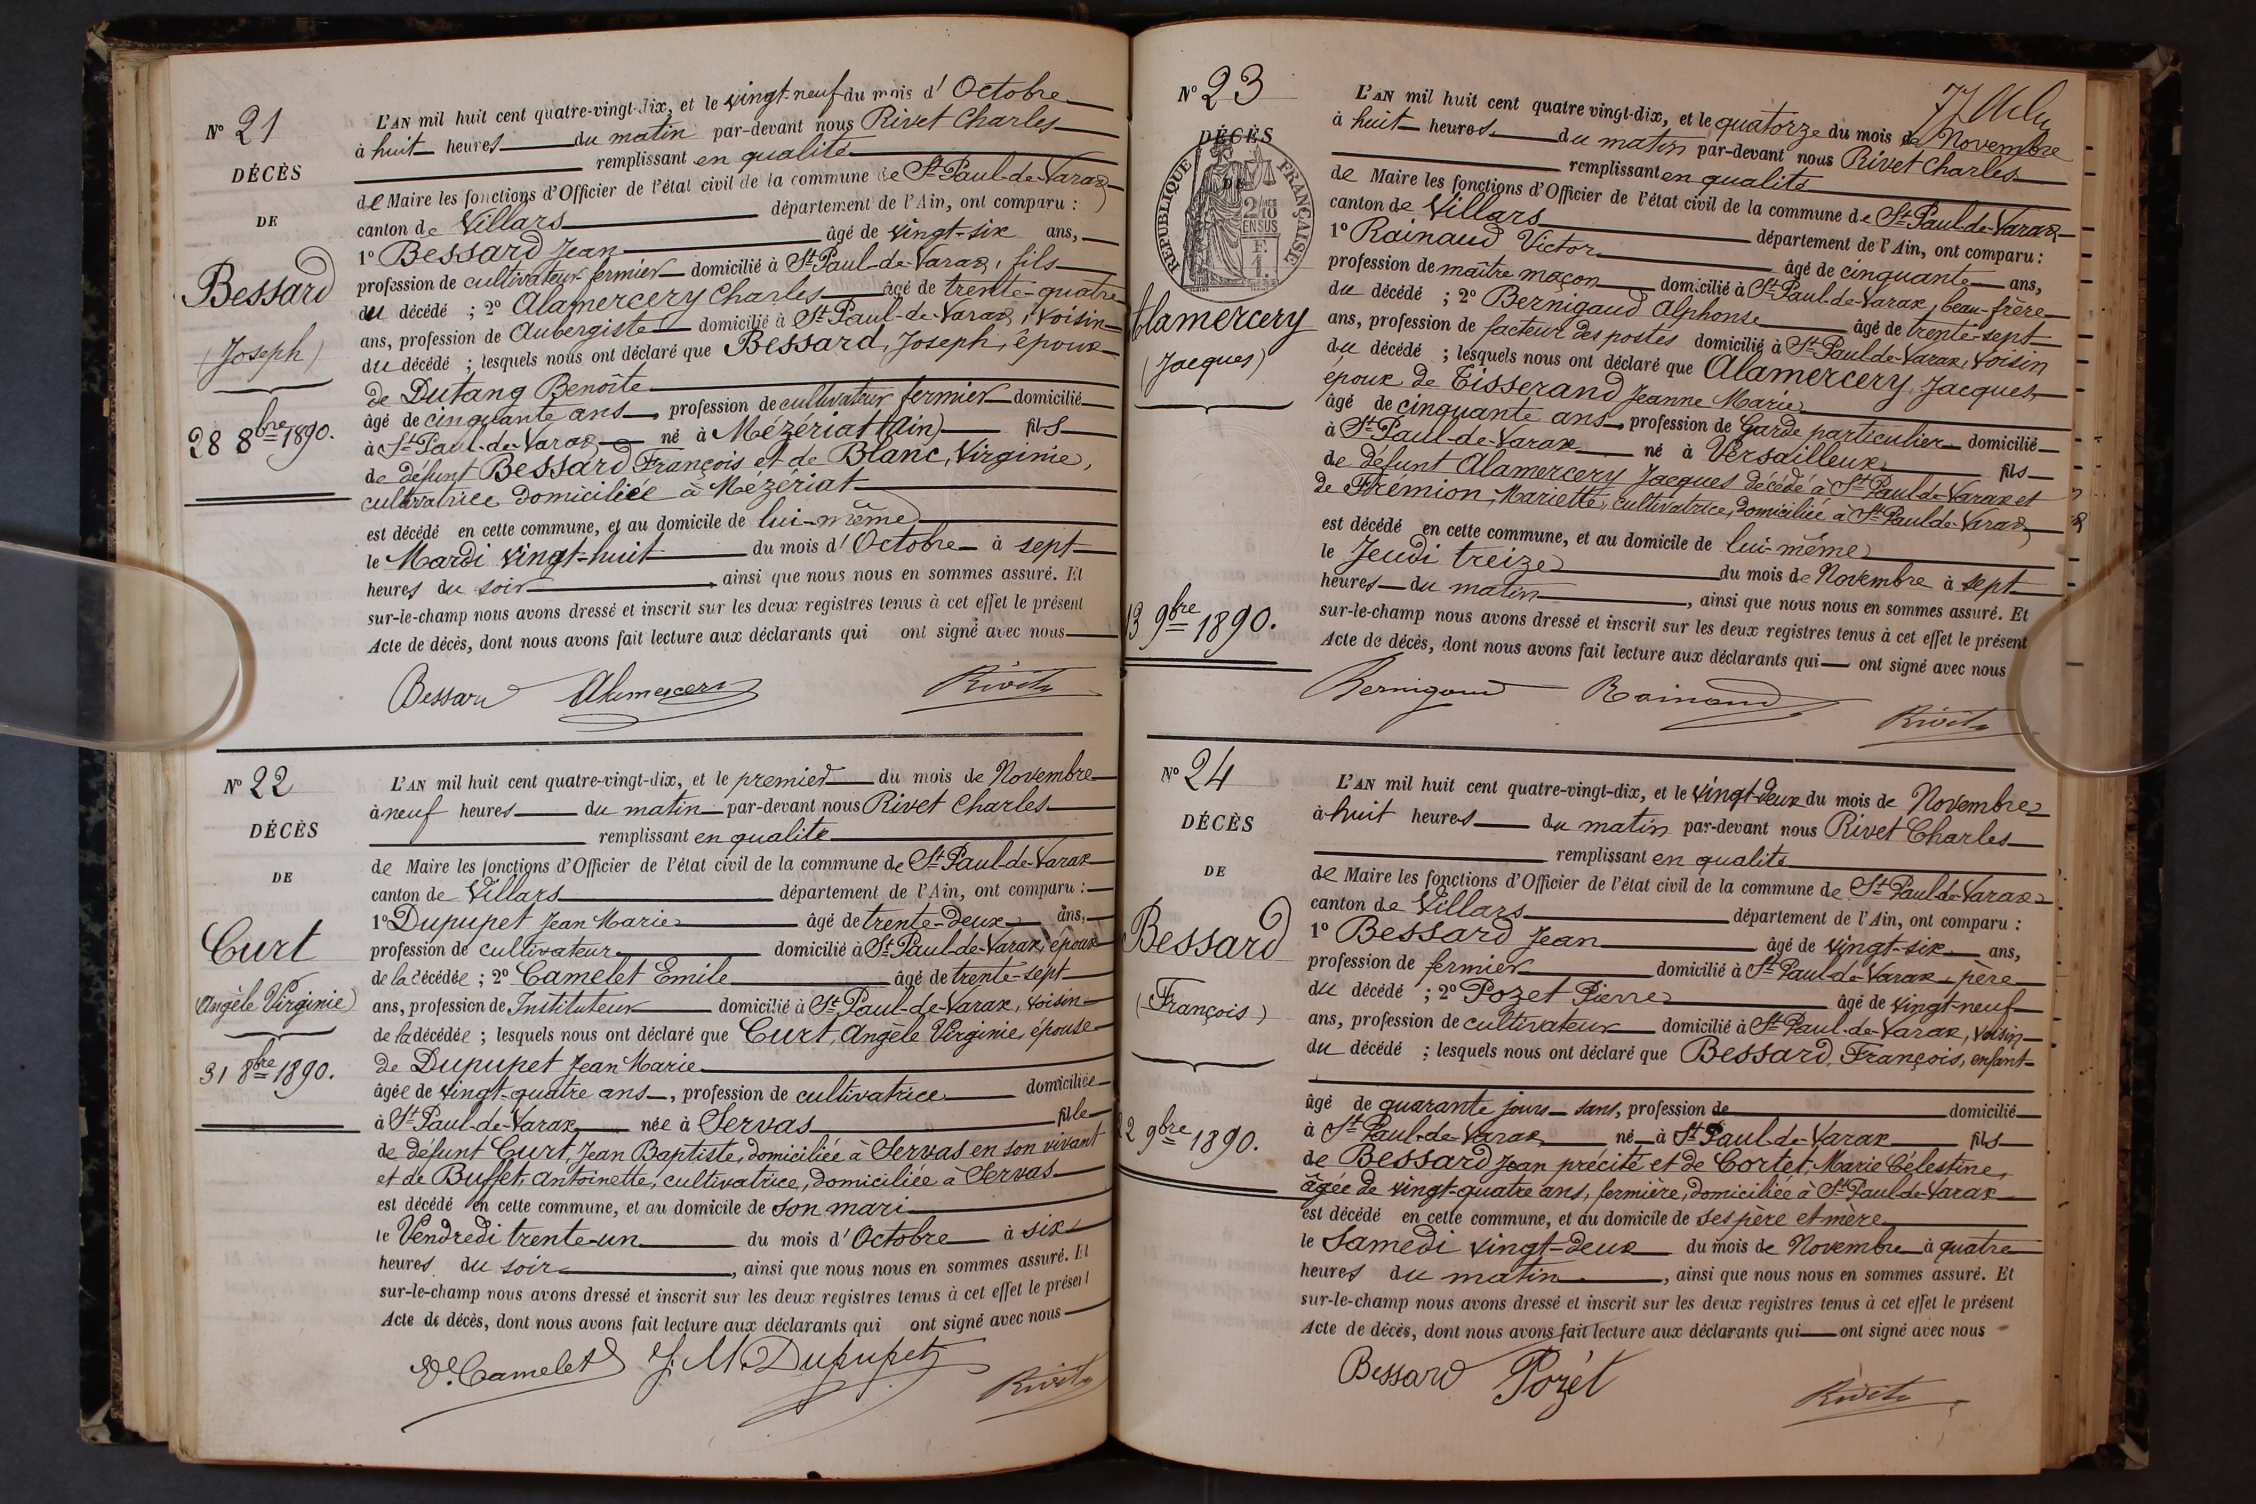 N° 21
DÉCÈS
DE
Bessard
(Joseph)
28 8bre 1890.
L'AN mil huit cent quatre-vingt-dix, et le vingt-neuf du mois d'Octobre
à huit heures du matin par-devant nous Rivet Charles
remplissant en qualité
de Maire les fonctions d'Officier de l'état civil de la commune de St Paul-de-Varax
canton de Villars département de l'Ain, ont comparu :
1° Bessard Jean âgé de vingt-six ans,
profession de cultivateur fermier domicilié à St Paul-de-Varax, fils
du décédé ; 2° Alamercery Charles âgé de trente-quatre
ans, profession de Aubergiste domicilié à St Paul-de-Varax, voisin
du décédé ; lesquels nous ont déclaré que Bessard, Joseph, époux
de Dutang Benoîte
âgé de cinquante ans, profession de cultivateur fermier domicilié
à St Paul-de-Varax né à Mézériat (Ain) fils
de défunt Bessard François et de Blanc, Virginie,
cultivatrice domiciliée à Mézériat
est décédé en cette commune, et au domicile de lui-même
le Mardi vingt-huit du mois d'Octobre à sept
heures du soir, ainsi que nous nous en sommes assuré. Et
sur-le-champ nous avons dressé et inscrit sur les deux registres tenus à cet effet le présent
Acte de décès, dont nous avons fait lecture aux déclarants qui ont signé avec nous
Bessard Alamercery Rivet
N° 22
DÉCÈS
DE
Curt
(Angèle Virginie)
31 8bre 1890.
L'AN mil huit cent quatre-vingt-dix, et le premier du mois de Novembre
à neuf heures du matin par-devant nous Rivet Charles
remplissant en qualité
de Maire les fonctions d'Officier de l'état civil de la commune de St Paul-de-Varax
canton de Villars département de l'Ain, ont comparu :
1° Dupupet Jean Marie âgé de trente-deux ans,
profession de cultivateur domicilié à St Paul-de-Varax, époux
de la décédée ; 2° Camelet Emile âgé de trente-sept
ans, profession de Instituteur domicilié à St Paul-de-Varax, voisin
de la décédée ; lesquels nous ont déclaré que Curt, Angèle Virginie, épouse
de Dupupet Jean Marie
âgée de vingt-quatre ans, profession de cultivatrice domiciliée
à St Paul-de-Varax née à Servas fille
de défunt Curt, Jean Baptiste, domiciliée à Servas en son vivant
et de Buffet, Antoinette, cultivatrice, domiciliée à Servas
est décédé en cette commune, et au domicile de son mari
le Vendredi trente-un du mois d'Octobre à six
heures du soir, ainsi que nous nous en sommes assuré. Et
sur-le-champ nous avons dressé et inscrit sur les deux registres tenus à cet effet le présent
Acte de décès, dont nous avons fait lecture aux déclarants qui ont signé avec nous
E. Camelet J. M. Dupupet Rivet
N° 23
DÉCÈS
DE
RÉPUBLIQUE FRANÇAISE
2/10
EN SUS
Alamercery
(Jacques)
13 9bre 1890.
L'AN mil huit cent quatre vingt-dix, et le quatorze du mois de Novembre
à huit heures du matin par-devant nous Rivet Charles
remplissant en qualité
de Maire les fonctions d'Officier de l'état civil de la commune de St Paul-de-Varax
canton de Villars département de l'Ain, ont comparu :
1° Rainaud Victor âgé de cinquante ans,
profession de maître maçon domicilié à St Paul-de-Varax, beau-frère
du décédé ; 2° Bernigaud Alphonse âgé de trente-sept
ans, profession de facteur des postes domicilié à St Paul-de-Varax, voisin
du décédé ; lesquels nous ont déclaré que Alamercery, Jacques,
époux de Tisserand Jeanne Marie
âgé de cinquante ans, profession de Garde particulier domicilié
à St Paul-de-Varax né à Versailleux fils
de défunt Alamercery Jacques décédé à St Paul-de-Varax et
de Frémion, Mariette, cultivatrice, domiciliée à St Paul-de-Varax
est décédé en cette commune, et au domicile de lui-même
le Jeudi treize du mois de Novembre à sept
heures du matin, ainsi que nous nous en sommes assuré. Et
sur-le-champ nous avons dressé et inscrit sur les deux registres tenus à cet effet le présent
Acte de décès, dont nous avons fait lecture aux déclarants qui ont signé avec nous
Bernigaud Rainaud Rivet
N° 24
DÉCÈS
DE
Bessard
(François)
22 9bre 1890.
L'AN mil huit cent quatre-vingt-dix, et le vingt-deux du mois de Novembre
à huit heures du matin par-devant nous Rivet Charles
remplissant en qualité
de Maire les fonctions d'Officier de l'état civil de la commune de St Paul-de-Varax
canton de Villars département de l'Ain, ont comparu :
1° Bessard Jean âgé de vingt-six ans,
profession de fermier domicilié à St Paul-de-Varax père
du décédé ; 2° Pozet Pierre âgé de vingt-neuf
ans, profession de cultivateur domicilié à St Paul-de-Varax, voisin
du décédé ; lesquels nous ont déclaré que Bessard, François, enfant
âgé de quarante jours sans, profession de domicilié
à St Paul-de-Varax né à St Paul-de-Varax fils
de Bessard Jean précité et de Cortet, Marie Célestine,
âgée de vingt-quatre ans, fermière, domiciliée à St Paul-de-Varax
est décédé en cette commune, et au domicile de ses père et mère
le Samedi vingt-deux du mois de Novembre à quatre
heures du matin, ainsi que nous nous en sommes assuré. Et
sur-le-champ nous avons dressé et inscrit sur les deux registres tenus à cet effet le présent
Acte de décès, dont nous avons fait lecture aux déclarants qui ont signé avec nous
Bessard Pozet Rivet